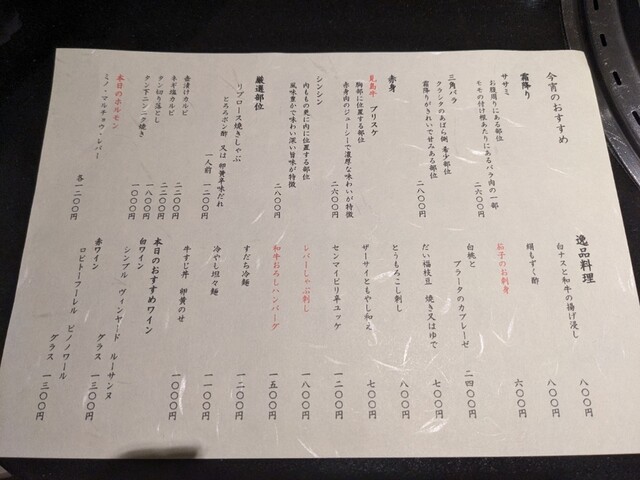 今宵のおすすめ
霜降り
ササミ
お腹周りにある部位
モモの付け根あたりにあるバラ肉の一部
二六〇〇円
三角バラ
クラシタのあばら側 希少部位
霜降りがきれいで甘みある部位
二八〇〇円
赤身
見島牛 ブリスケ
胸部に位置する部位
赤身肉のジューシーで濃厚な味わいが特徴
二六〇〇円
シンシン
内ももの更に内に位置する部位
風味豊かで味わい深い旨味が特徴
二八〇〇円
厳選部位
リブロース焼きしゃぶ
とろろポン酢 又は 卵黄辛味だれ
一人前 一二〇〇円
壺漬けカルビ 二二〇〇円
ネギ塩カルビ 二二〇〇円
タン切り落とし 一八〇〇円
タン下ニンニク焼き 一〇〇〇円
本日のホルモン
ミノ・マルチョウ・レバー
各一二〇〇円
逸品料理
白ナスと和牛の揚げ浸し 八〇〇円
絹もずく酢 八〇〇円
茄子のお刺身 六〇〇円
白桃と
ブラータのカプレーゼ 二四〇〇円
だい梅枝豆 焼き又はゆで 七〇〇円
とうもろこし刺し 八〇〇円
ザーサイともやし和え 七〇〇円
センマイピリ辛ユッケ 一二〇〇円
レバーしゃぶ刺し 一八〇〇円
和牛おろしハンバーグ 一五〇〇円
すだち冷麺 一二〇〇円
冷やし坦々麺 一一〇〇円
牛すじ丼 卵黄のせ 一〇〇〇円
本日のおすすめワイン
白ワイン
シンプル ヴィンヤード ルーサンヌ
グラス 一三〇〇円
赤ワイン
ロビトーフーレル ピノノワール
グラス 一三〇〇円